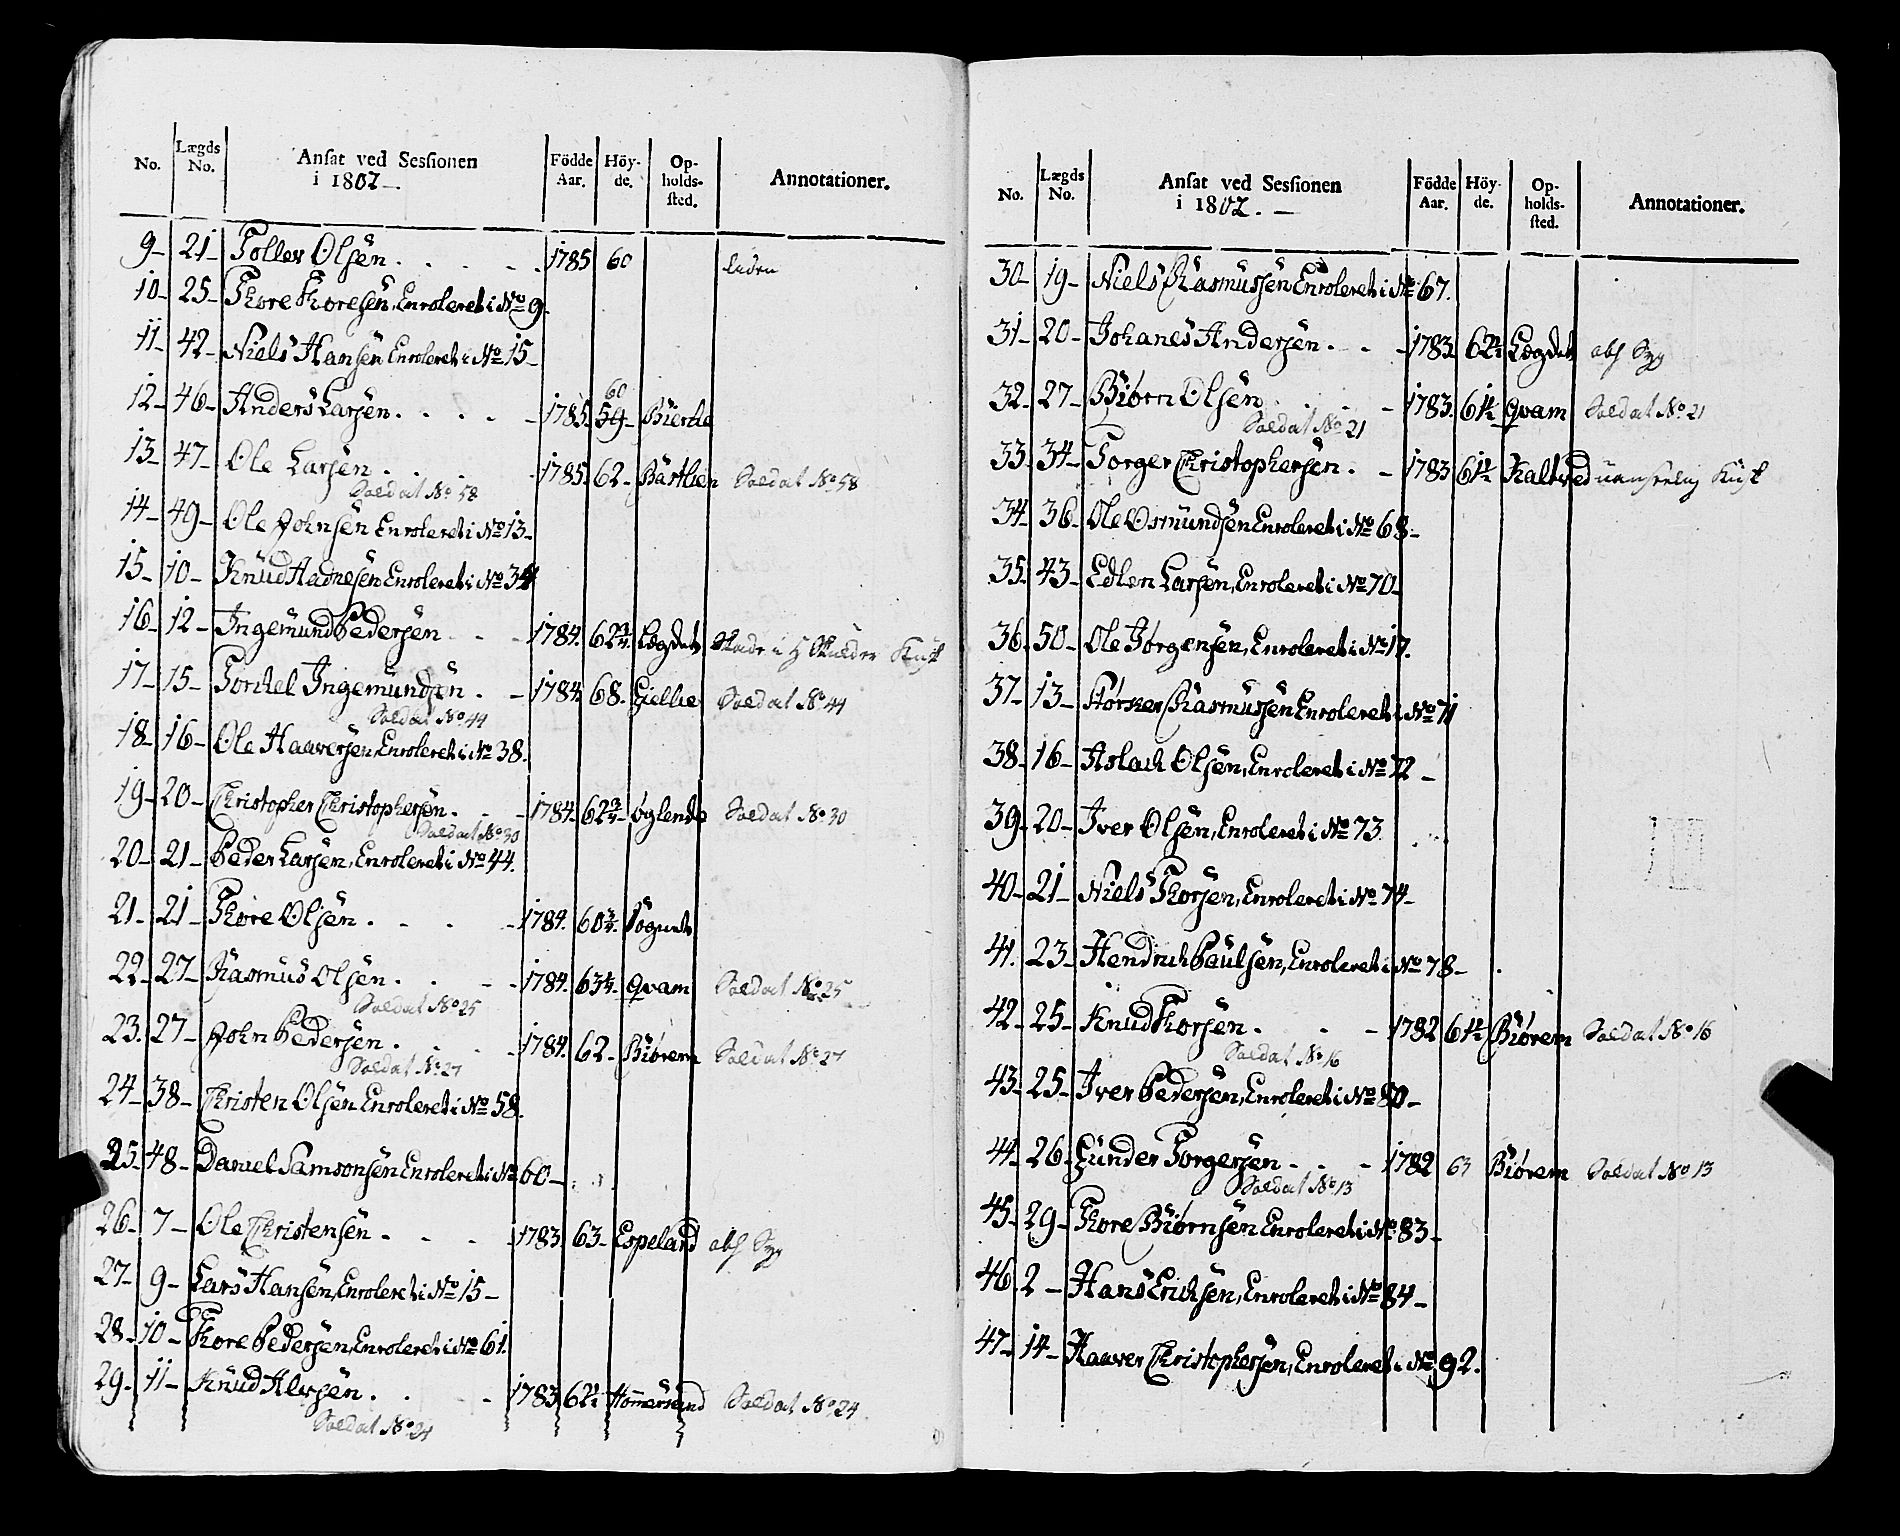 No. Lægds No. Ansat ved Sessionen i 1802 – Födde Aar. Höy-de. Op-holds-sted. Annotationer.
9 – 21 – Tollev Olsen . . . . 1785 60 Liden
10 – 25 – Thore Thoresen, Enroleret i No 9.
11 – 42 – Niels Hansen Enroleret i No 15 –
12 – 46 – Anders Larsen . . . . – 1785. 60 59 – Bierlie
13 – 47 – Ole Larsen . . . . – 1785. 62 – Bärtlien Soldat No 58
Soldat No 58
14 – 49 – Ole Johnsen Enroleret i No 13 –
15 – 10 – Knud Hadnesen Enroleret i No 34
16 – 12 – Ingemund Pedersen – – – 1784. 62 3/4 Lægdet Skade i H Skulder Kust
17 – 15 – Torkel Ingemundsen . – 1784. 68. Giellie Soldat No 44
Soldat No 44
18 – 16 – Ole Haaversen, Enroleret i No 38.
19 – 20 – Christopher Christophersen . – – 1784. 62 3/4 – Øglende Soldat No 30
Soldat No 30
20 – 21 – Peder Larsen, Enroleret i No 44.
21 – 21 – Thore Olsen . – . – 1784. 60 3/4. Sognet
22 – 27 – Rasmus Olsen . . – – 1784. 63 1/4. Qvam Soldat No 25
Soldat No 25
23. 27 – John Pedersen . . . – 1784. 62 – Biørem Soldat No 27
Soldat No 27
24 – 38 – Christen Olsen Enroleret i No 58.
25 – 48 – Daniel Samsonsen Enroleret i No 60 –
26 – 7 – Ole Christensen . – – – 1783. 63 – Espeland abs Syg
27 – 9 – Lars Hansen, Enroleret i No 15 –
28 – 10 – Thore Pedersen, Enroleret i No 61.
29. 11 – Knud Alvsen . . – 1783. 62 1/2 Homersand Soldat No 24
Soldat No 24
No. Lægds No. Ansat ved Sessionen i 1802. – Födde Aar. Höy-de. Op-holds-sted. Annotationer.
30 – 19 – Niels Rasmussen Enroleret i No 67.
31 – 20 – Johanes Andersen . – – 1783. 62 1/2 Lægdet abs Syg
32 – 27 – Biørn Olsen . . . – 1783. 61 1/2 Qvam Soldat No 21
Soldat No 21
33. 34 – Torger Christophersen . – 1783 61 1/2 Kaltved uanseelig Kust
34 – 36 – Ole Osmundsen Enroleret i No 68 –
35. 43 – Edlen Larsen, Enroleret i No 70 –
36. 50 – Ole Jørgensen, Enroleret i No 17.
37 – 13 – Rasmussen Enroleret i No 71
38 – 16 – Aslach Olsen, Enroleret i No 72 –
39. 20 – Iver Olsen, Enroleret i No 73
40 – 21 – Niels Thorsen, Enroleret i No 74 –
41. 23 – Hendrich Paulsen, Enroleret i No 78 –
42 – 25 – Knud Thorsen . – – 1782 61 1/2 Biørem Soldat No 16
Soldat No 16
43 – 25 – Iver Pedersen, Enroleret i No 80 –
44 – 26 – Gunder Torgersen . . – 1782 63 Biørem Soldat No 13
Soldat No 13
45 – 29 – Thore Biørnsen Enroleret i No 83 –
46. 2 – Hans Erichsen, Enroleret i No 84 –
47 – 14 – Haaver Christophersen, Enroleret i No 92.